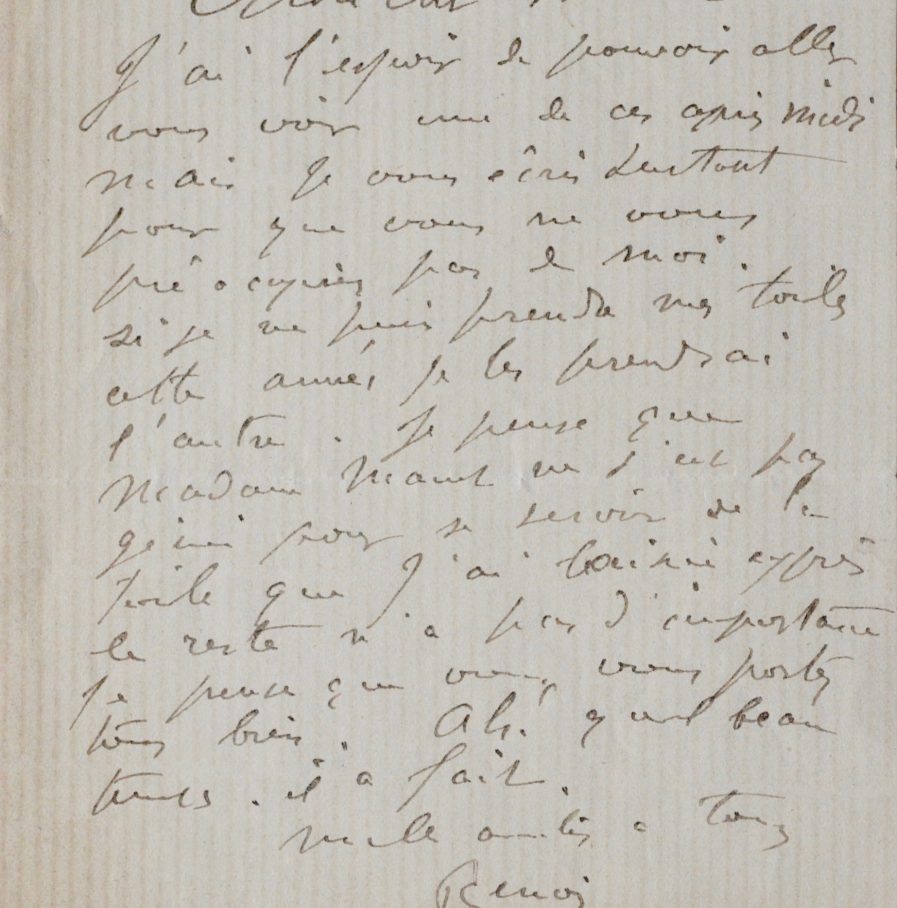 J'ai l'espoir de pouvoir aller
vous voir une de ces après midi
mais je vous écris surtout
pour que vous ne vous
préocupiez pas de moi.
si je ne puis prendre mes toiles
cette année je les prendrai
l'autre. Je pense que
Madame ne s'est pas
génée pour se servir de la
toile que j'ai laissée exprès
le reste n'a pas d'importance
je pense que vous vous portez
tous bien. Ah! quel beau
temps. il a fait.
mille amitiés a tous
Renoir